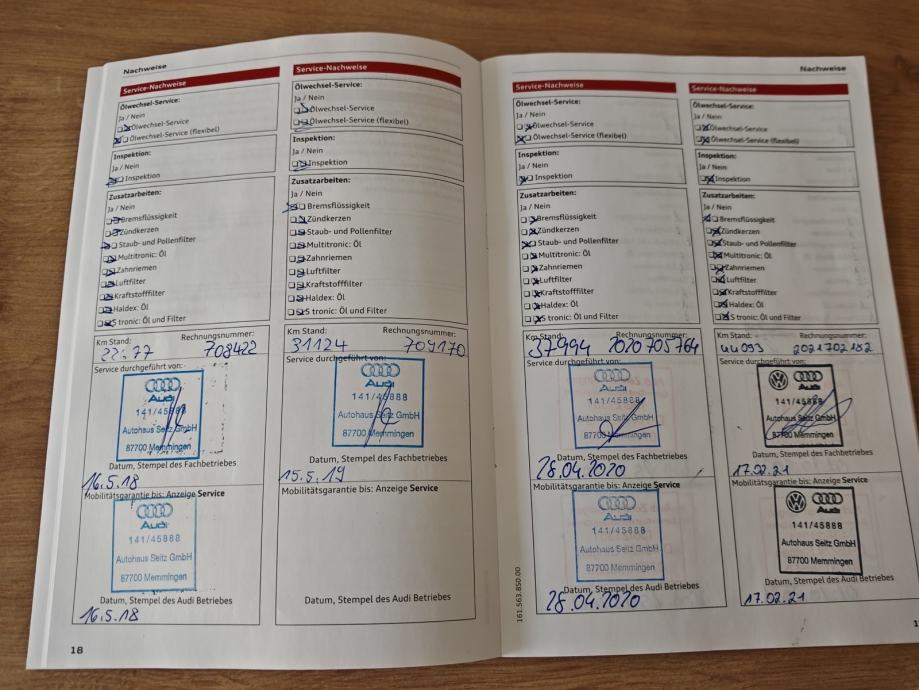 Nachweise
Service-Nachweise
Ölwechsel-Service:
Ja / Nein
Ölwechsel-Service
Ölwechsel-Service (flexibel)
Inspektion:
Ja / Nein
Inspektion
Zusatzarbeiten:
Ja / Nein
Bremsflüssigkeit
Zündkerzen
Staub- und Pollenfilter
Multitronic: Öl
Zahnriemen
Luftfilter
Kraftstofffilter
Haldex: Öl
S tronic: Öl und Filter
Km Stand: Rechnungsnummer:
708422
Service durchgeführt von:
Audi
141/45888
Autohaus Seitz GmbH
87700 Memmingen
Datum, Stempel des Fachbetriebes
16.5.18
Mobilitätsgarantie bis: Anzeige Service
Audi
141/45888
Autohaus Seitz GmbH
87700 Memmingen
Datum, Stempel des Audi Betriebes
16.5.18
18
Service-Nachweise
Ölwechsel-Service:
Ja / Nein
Ölwechsel-Service
Ölwechsel-Service (flexibel)
Inspektion:
Ja / Nein
Inspektion
Zusatzarbeiten:
Ja / Nein
Bremsflüssigkeit
Zündkerzen
Staub- und Pollenfilter
Multitronic: Öl
Zahnriemen
Luftfilter
Kraftstofffilter
Haldex: Öl
S tronic: Öl und Filter
Km Stand: Rechnungsnummer:
31124 709170
Service durchgeführt von:
Audi
141/45888
Autohaus Seitz GmbH
87700 Memmingen
Datum, Stempel des Fachbetriebes
15.5.19
Mobilitätsgarantie bis: Anzeige Service
Datum, Stempel des Audi Betriebes
Service-Nachweise
Ölwechsel-Service:
Ja / Nein
Ölwechsel-Service
Ölwechsel-Service (flexibel)
Inspektion:
Ja / Nein
Inspektion
Zusatzarbeiten:
Ja / Nein
Bremsflüssigkeit
Zündkerzen
Staub- und Pollenfilter
Multitronic: Öl
Zahnriemen
Luftfilter
Kraftstofffilter
Haldex: Öl
S tronic: Öl und Filter
Km Stand: Rechnungsnummer:
37994 2020705764
Service durchgeführt von:
Audi
141/45888
Autohaus Seitz GmbH
87700 Memmingen
Datum, Stempel des Fachbetriebes
28.04.2020
Mobilitätsgarantie bis: Anzeige Service
Audi
141/45888
Autohaus Seitz GmbH
87700 Memmingen
Datum, Stempel des Audi Betriebes
28.04.2020
161.563.850.00
Nachweise
Service-Nachweise
Ölwechsel-Service:
Ja / Nein
Ölwechsel-Service
Ölwechsel-Service (flexibel)
Inspektion:
Ja / Nein
Inspektion
Zusatzarbeiten:
Ja / Nein
Bremsflüssigkeit
Zündkerzen
Staub- und Pollenfilter
Multitronic: Öl
Zahnriemen
Luftfilter
Kraftstofffilter
Haldex: Öl
S tronic: Öl und Filter
Km Stand: Rechnungsnummer:
44093 2021702182
Service durchgeführt von:
Audi
141/45888
Autohaus Seitz GmbH
87700 Memmingen
Datum, Stempel des Fachbetriebes
17.02.21
Mobilitätsgarantie bis: Anzeige Service
Audi
141/45888
Autohaus Seitz GmbH
87700 Memmingen
Datum, Stempel des Audi Betriebes
17.02.21